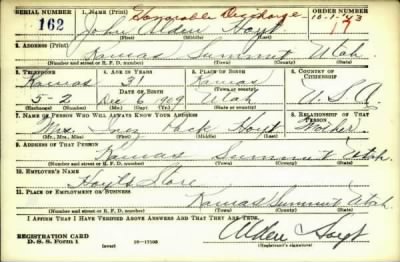 SERIAL NUMBER 1. NAME (Print) Honorable Discharge ORDER NUMBER
10-1-43
162 John Alden Hoyt 17
(First) (Middle) (Last)
2. ADDRESS (Print)
Kamas Summit Utah
(Number and street or R. F. D. number) (Town) (County) (State)
3. TELEPHONE 4. AGE IN YEARS 5. PLACE OF BIRTH 6. COUNTRY OF CITIZENSHIP
Kamas 31 Kamas
(Town or county)
5-2 Dec 1909 Utah U.S.A.
(Exchange) (Number) (Mo.) (Day) (Yr.) (State or country)
7. NAME OF PERSON WHO WILL ALWAYS KNOW YOUR ADDRESS 8. RELATIONSHIP OF THAT PERSON
Mrs. Inez Pack Hoyt Mother
(Mr., Mrs., Miss) (First) (Middle) (Last)
9. ADDRESS OF THAT PERSON
Kamas Summit Utah
(Number and street or R. F. D. number) (Town) (County) (State)
10. EMPLOYER'S NAME
Hoyt's Store
11. PLACE OF EMPLOYMENT OR BUSINESS
Kamas Summit Utah
(Number and street or R. F. D. number) (Town) (County) (State)
I AFFIRM THAT I HAVE VERIFIED ABOVE ANSWERS AND THAT THEY ARE TRUE.
REGISTRATION CARD
D. S. S. Form 1 (over) 16-17105
Alden Hoyt
(Registrant's signature)